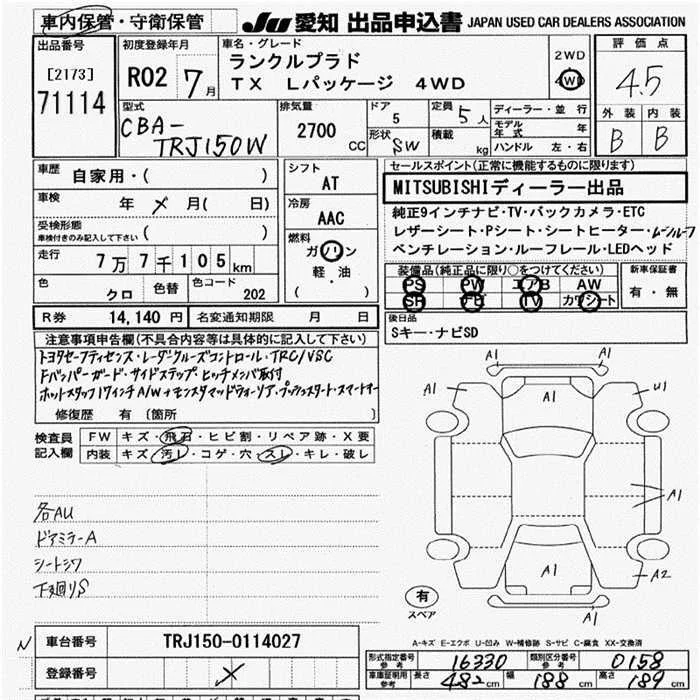 車内保管・守衛保管
JU 愛知 出品申込書 JAPAN USED CAR DEALERS ASSOCIATION
出品番号
[2173]
71114
初度登録年月
R02 7月
車名・グレード
ランクルプラド
TX Lパッケージ 4WD
2WD
4WD
評価点
4.5
外装 内装
B B
型式
CBA-
TRJ150W
排気量
2700
CC
ドア
5
定員
5人
形状
SW
積載
kg
ディーラー・並行
モデル年式 年
ハンドル 左・右
車歴
自家用・( )
車検
年 メ 月( 日)
受検形態
車検付きのみ記入して下さい ( )
走行
7万7千105km
色
クロ
色替
色コード
202
シフト
AT
冷房
AAC
燃料
ガソリン
軽・油
( )
セールスポイント(正常に機能するものに限ります)
MITSUBISHIディーラー出品
純正9インチナビ・TV・バックカメラ・ETC
レザーシート・Pシート・シートヒーター・ムーンルーフ
ベンチレーション・ルーフレール・LEDヘッド
装備品(純正品に限り○をつけてください)
PS PW エアB AW
SR ナビ TV カワシート
新車保証書
有・無
R券 14,140円
名変通知期限 月 日
後日品
Sキー・ナビSD
注意事項申告欄(不具合内容等は具体的に記入して下さい)
トヨタセーフティセンス・レーダークルーズコントロール・TRC/VSC
Fバンパーガード・サイドステップ・ヒッチメンバ取付
ホットスタッフ17インチA/W+モンスタマッドウォーリア・プッシュスタート・スマートキー
修復歴 有 〔箇所 〕
検査員
記入欄
FW キズ・飛石・ヒビ割・リペア跡・X要
内装 キズ・汚レ・コゲ・穴・スレ・キレ・破レ
各AU
ドアミラーA
シートシワ
下廻りS
A1
A1
A1
U1
A1
A1
A2
A1
有
スペア
A-キズ E-エクボ U-凹み W-補修跡 S-サビ C-腐食 XX-交換済
N
車台番号 TRJ150-0114027
登録番号 メ
形式指定番号 参考 16330
類別区分番号 参考 0158
車庫証明用 参考 長さ 482cm 幅 188cm 高さ 189cm